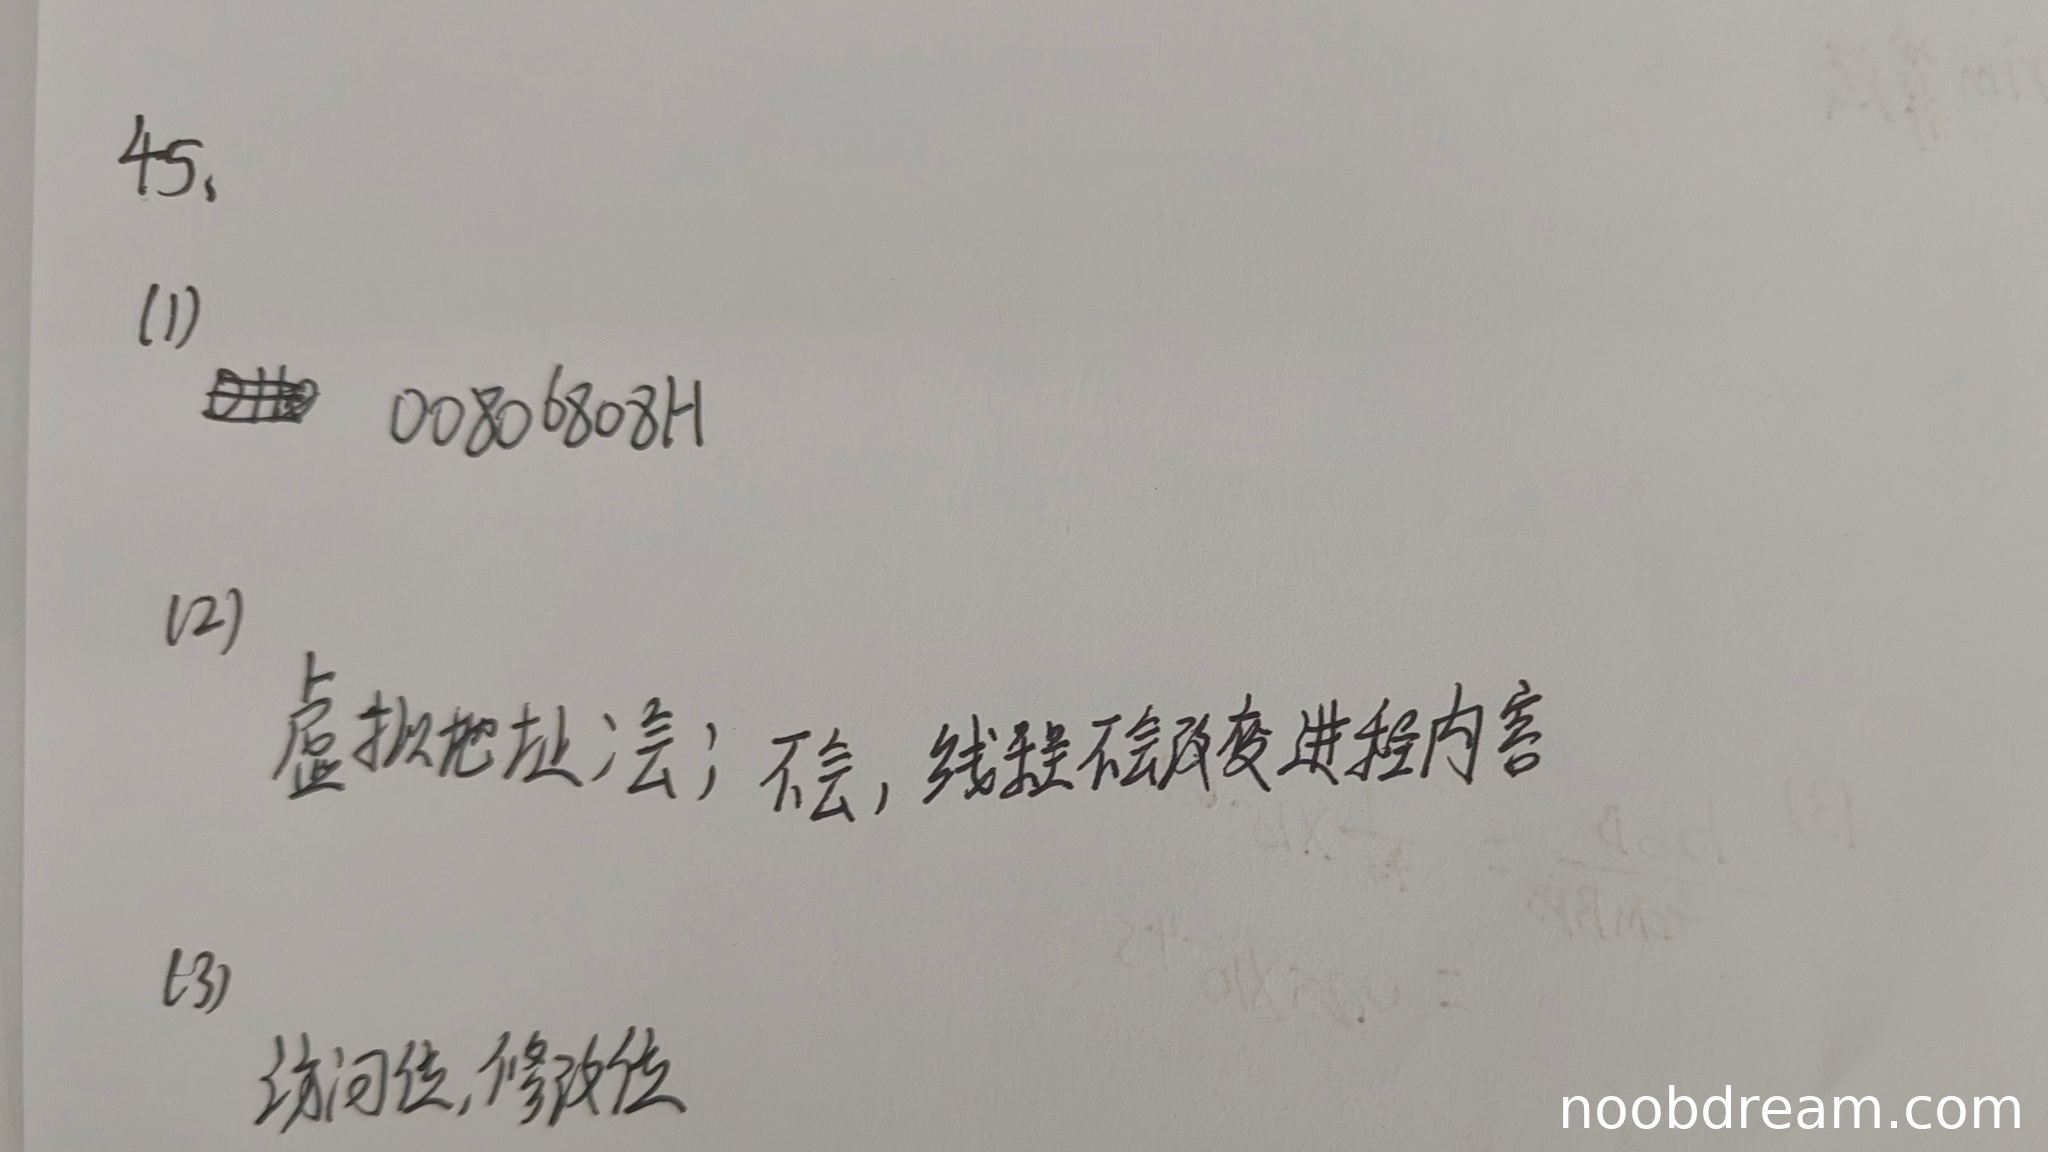 45、
(1)
00806808H
(2)
虚拟地址；会；不会，线程不会改变进程内容
(3)
访问位,修改位
noobdream.com